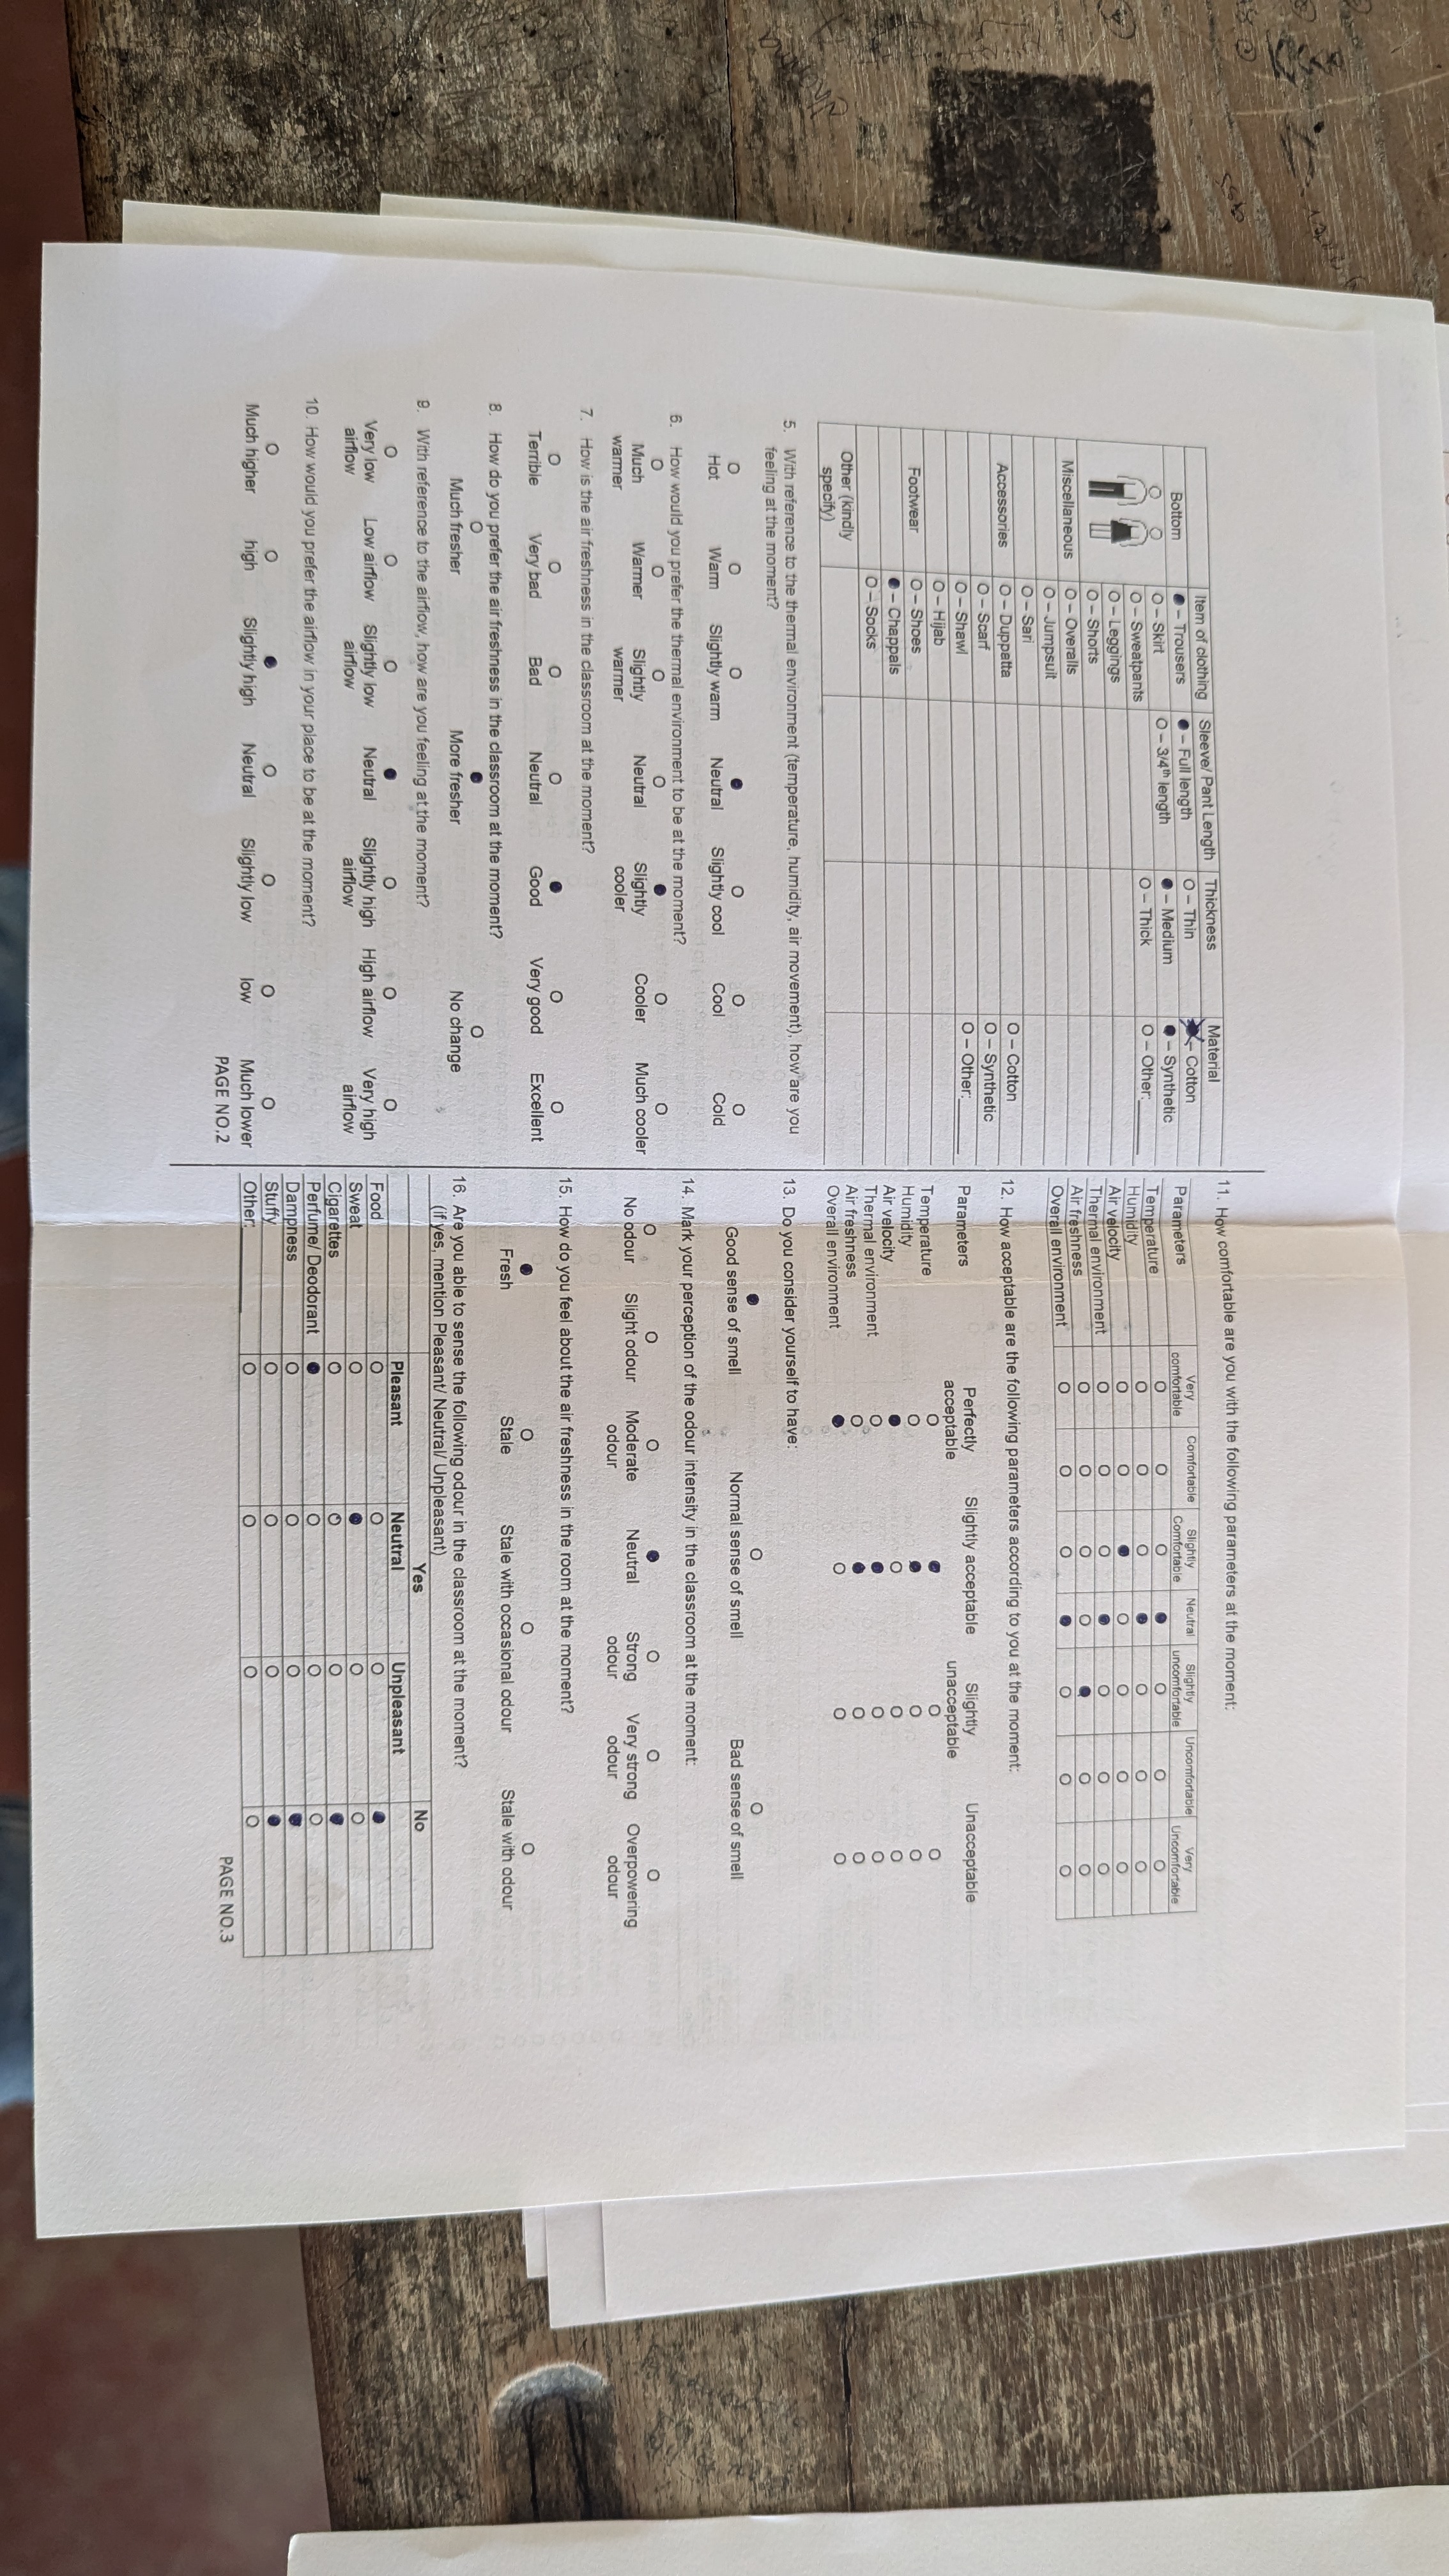 Item of clothing Sleeve/ Pant Length Thickness Material
Bottom ● – Trousers ● – Full length O – Thin – Cotton
O – Skirt O – 3/4th length ● – Medium ● – Synthetic
O – Sweatpants O – Thick O – Other:______
O – Leggings
O – Shorts
Miscellaneous O – Overalls
O – Jumpsuit
O – Sari
Accessories O – Duppatta O – Cotton
O – Scarf O – Synthetic
O – Shawl O – Other:______
O – Hijab
Footwear O – Shoes
● – Chappals
O – Socks
Other (kindly
specify)
5. With reference to the thermal environment (temperature, humidity, air movement), how are you
feeling at the moment?
O O O ● O O O
Hot Warm Slightly warm Neutral Slightly cool Cool Cold
6. How would you prefer the thermal environment to be at the moment?
O O O O ● O O
Much Warmer Slightly Neutral Slightly Cooler Much cooler
warmer warmer cooler
7. How is the air freshness in the classroom at the moment?
O O O O ● O O
Terrible Very bad Bad Neutral Good Very good Excellent
8. How do you prefer the air freshness in the classroom at the moment?
O ● O
Much fresher More fresher No change
9. With reference to the airflow, how are you feeling at the moment?
O O O ● O O O
Very low Low airflow Slightly low Neutral Slightly high High airflow Very high
airflow airflow airflow airflow
10. How would you prefer the airflow in your place to be at the moment?
O O ● O O O O
Much higher high Slightly high Neutral Slightly low low Much lower
PAGE NO.2
11. How comfortable are you with the following parameters at the moment:
Parameters Very Comfortable Slightly Neutral Slightly Uncomfortable Very
comfortable Comfortable uncomfortable Uncomfortable
Temperature O O O ● O O O
Humidity O O O ● O O O
Air velocity O O ● O O O O
Thermal environment O O O ● O O O
Air freshness O O O O ● O O
Overall environment O O O ● O O O
12. How acceptable are the following parameters according to you at the moment:
Parameters Perfectly Slightly acceptable Slightly Unacceptable
acceptable unacceptable
Temperature O ● O O
Humidity O ● O O
Air velocity ● O O O
Thermal environment O ● O O
Air freshness O ● O O
Overall environment ● O O O
13. Do you consider yourself to have:
● O O
Good sense of smell Normal sense of smell Bad sense of smell
14. Mark your perception of the odour intensity in the classroom at the moment:
O O O ● O O O
No odour Slight odour Moderate Neutral Strong Very strong Overpowering
odour odour odour odour
15. How do you feel about the air freshness in the room at the moment?
● O O O
Fresh Stale Stale with occasional odour Stale with odour
16. Are you able to sense the following odour in the classroom at the moment?
(if yes, mention Pleasant/ Neutral/ Unpleasant)
Yes No
Pleasant Neutral Unpleasant
Food O O O ●
Sweat O ● O O
Cigarettes O O O ●
Perfume/ Deodorant ● O O O
Dampness O O O ●
Stuffy O O O ●
Other:__________ O O O O
PAGE NO.3